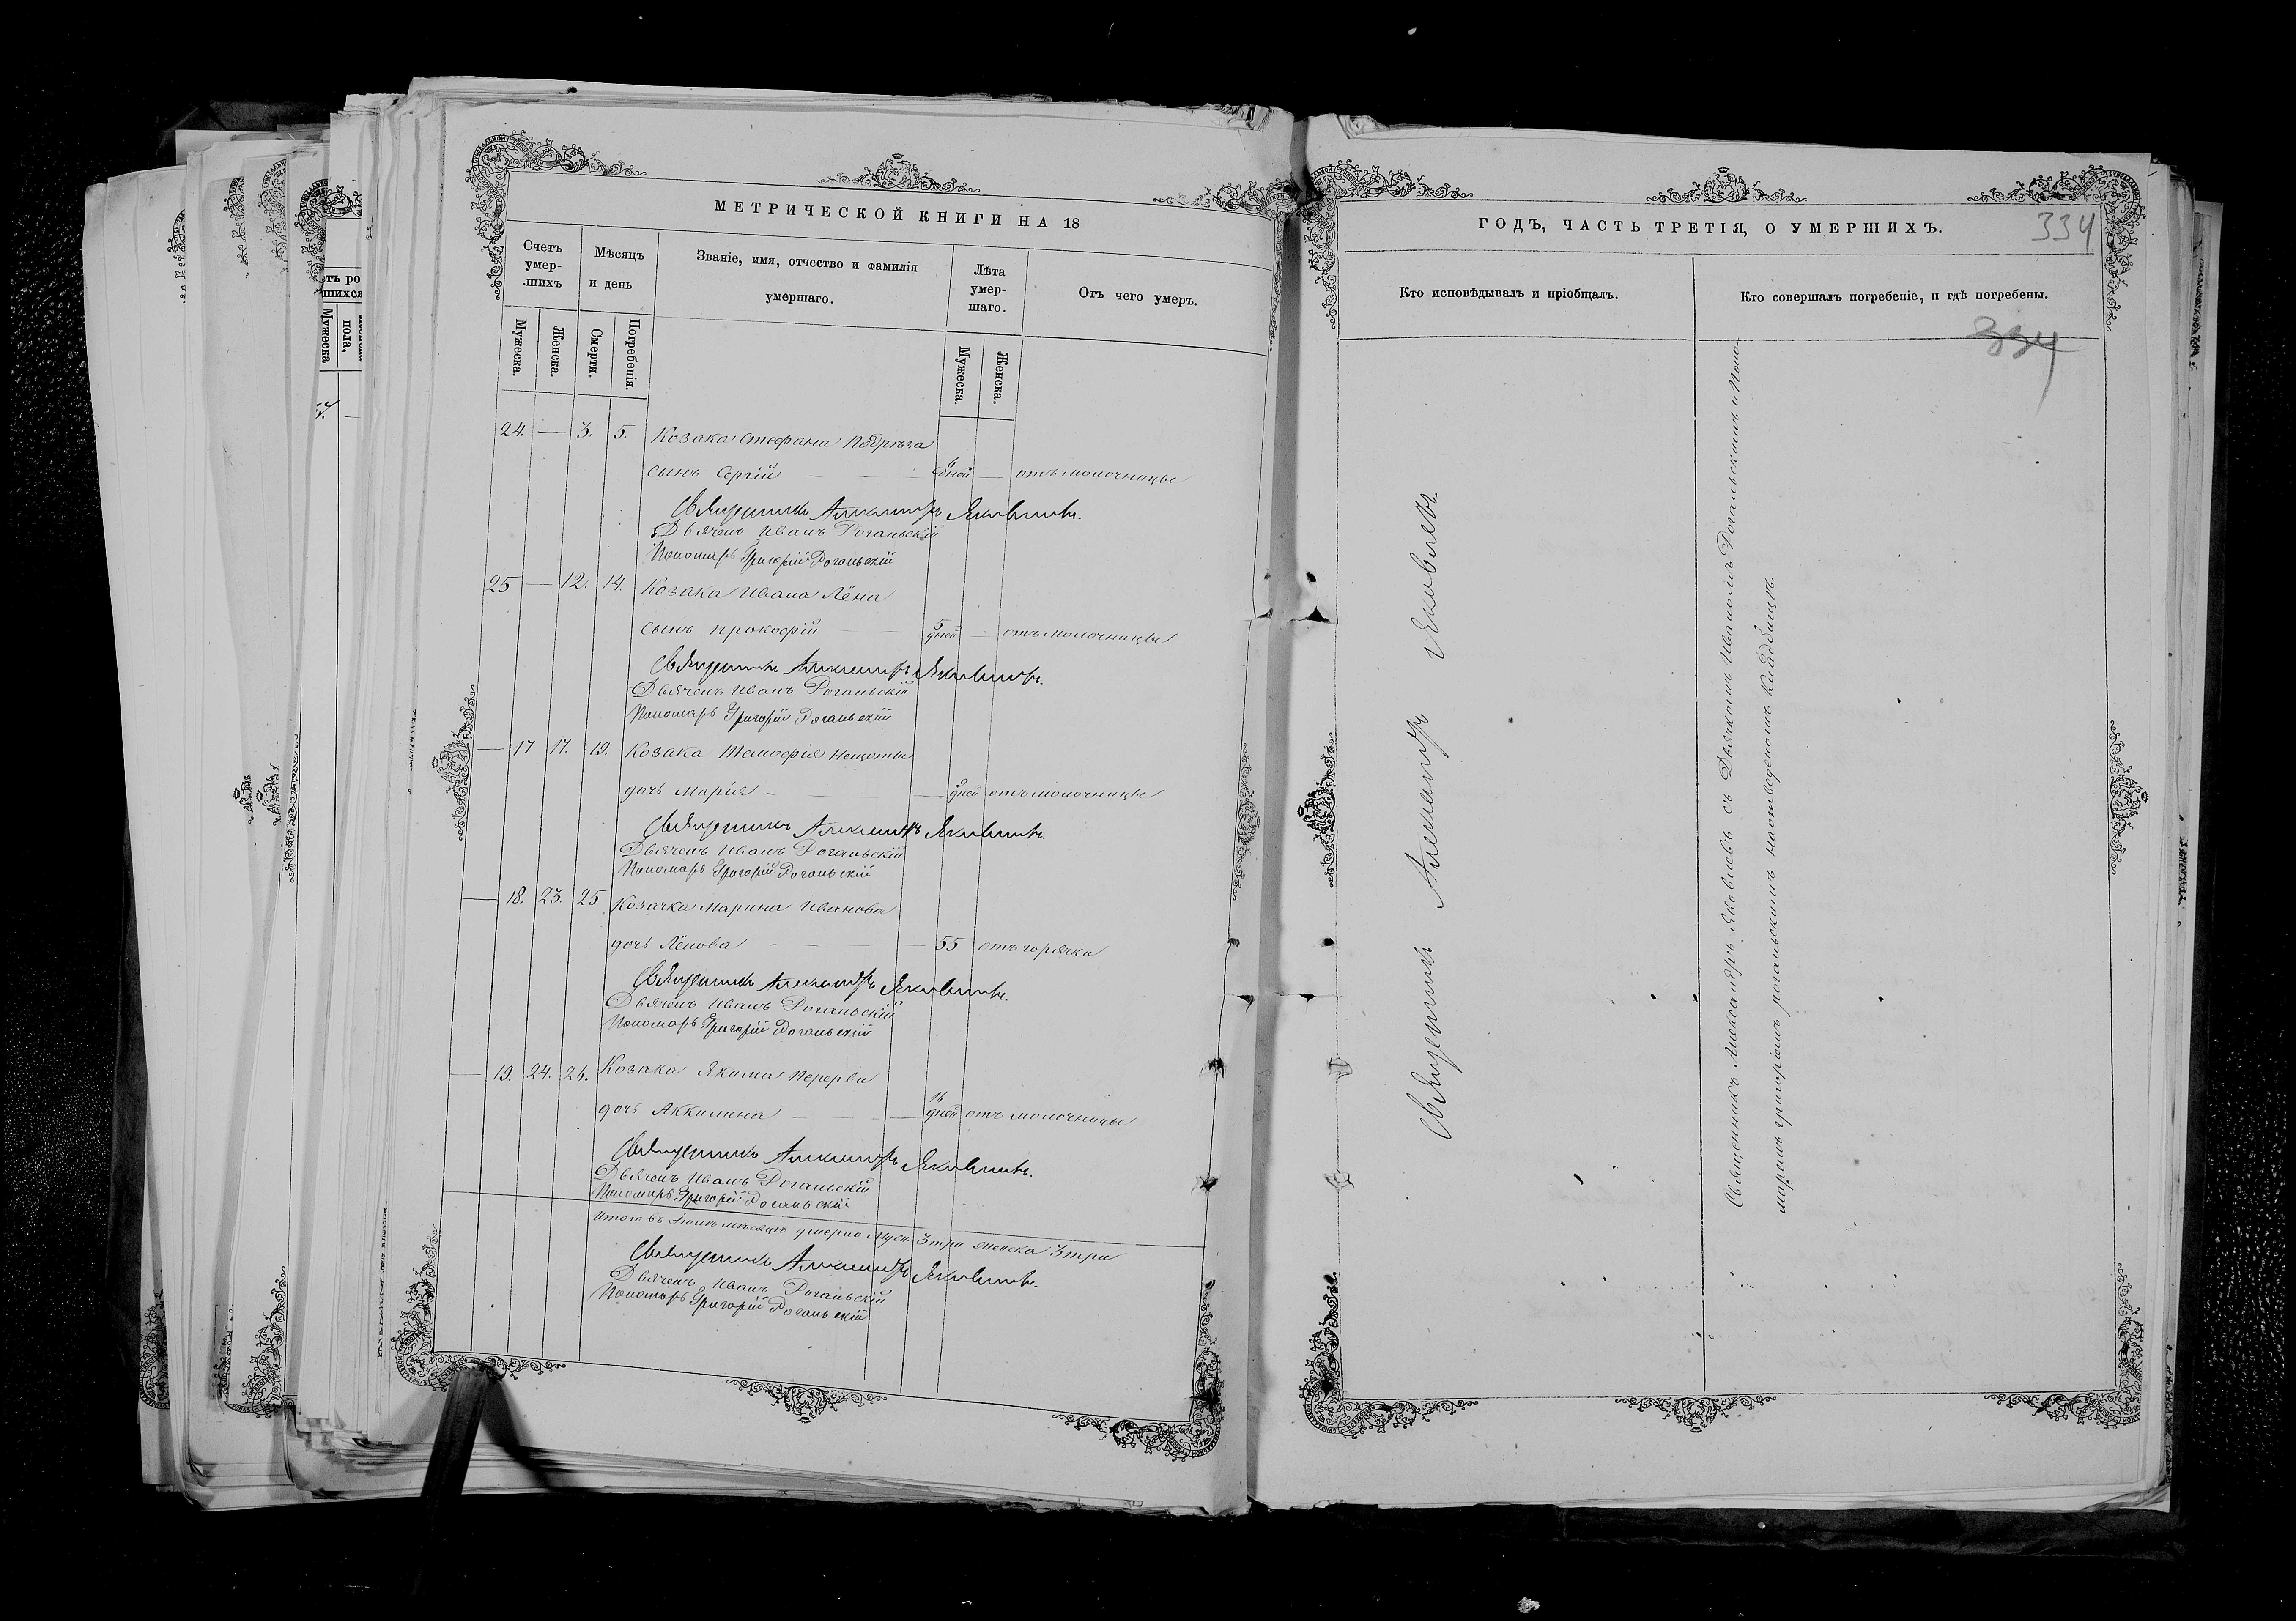 МЕТРИЧЕСКОЙ КНИГИ НА 18
Счетъ умер-шихъ
Мѣсяцъ и день
Званіе, имя, отчество и фамилія умершаго.
Лѣта умер-шаго.
Отъ чего умеръ.
Мужеска.
Женска.
Смерти.
Погребенія.
Мужеска.
Женска.
24. — 3. 5. Козака Стефана
сынъ Сергій — — 6 дней — отъ молочницы
Священникъ Александръ Яковлевъ.
Дьячекъ Иванъ Рогальскій
Пономарь Григорій Рогальскій
25 — 12. 14. Козака Ивана Лёна
сынъ Прокофій — — 5 дней — отъ молочницы
Священникъ Александръ Яковлевъ.
Дьячекъ Иванъ Рогальскій
Пономарь Григорій Рогальскій
— 17 17. 19. Козака
дочь Марія — — — дней отъ молочницы
Священникъ Александръ Яковлевъ.
Дьячекъ Иванъ Рогальскій
Пономарь Григорій Рогальскій
— 18. 23. 25 Козачка Марина Иванова
дочь Лёнова — — — — 55 отъ горячки
Священникъ Александръ Яковлевъ.
Дьячекъ Иванъ Рогальскій
Пономарь Григорій Рогальскій
— 19. 24. 26. Козака Якима Перерви
дочь Аккилина — — — — 16 дней отъ молочницы
Священникъ Александръ Яковлевъ.
Дьячекъ Иванъ Рогальскій
Пономарь Григорій Рогальскій
Итого въ мѣсяцѣ умерло 3 три женска 3 три
Священникъ Александръ Яковлевъ.
Дьячекъ Иванъ Рогальскій
Пономарь Григорій Рогальскій
ГОДЪ, ЧАСТЬ ТРЕТІЯ, О УМЕРШИХЪ.
334
Кто исповѣдывалъ и пріобщалъ.
Кто совершалъ погребеніе, и гдѣ погребены.
334
Священникъ Александръ Яковлевъ.
Священникъ Александръ Яковлевъ съ Дьячкомъ Иваномъ Рогальскимъ и Поно-
маремъ Григоріемъ Рогальскимъ на отведеномъ кладбищѣ.